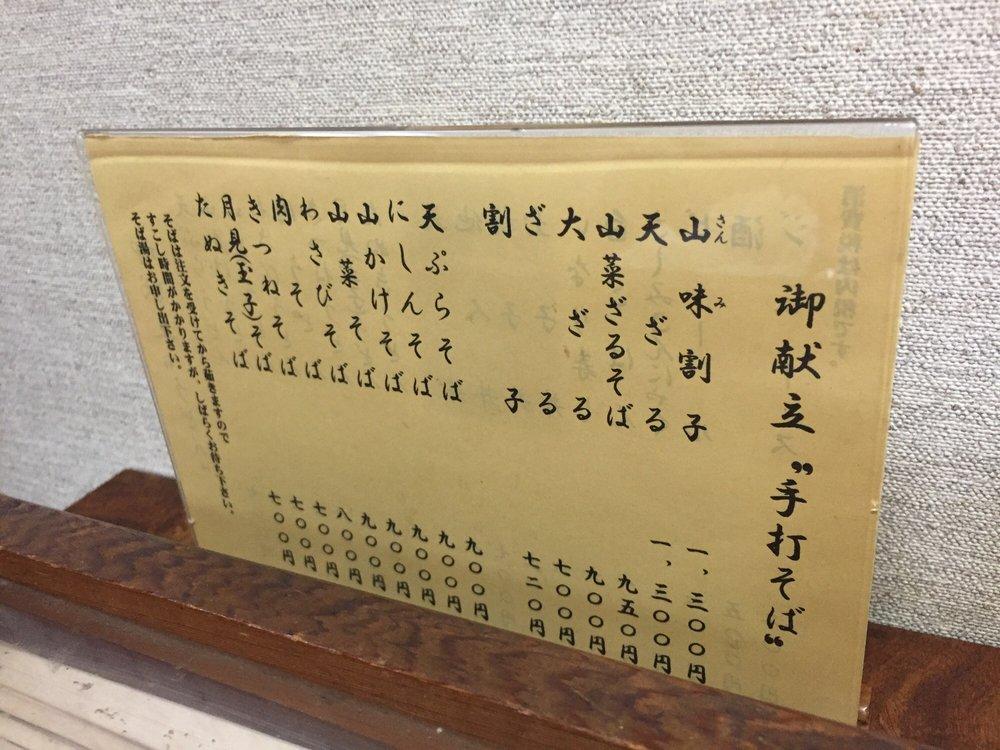 御献立 〝手打そば〟
山味割子 一、三〇〇円
さん み
天ざる 一、三〇〇円
山菜ざるそば 九五〇円
大ざる 九〇〇円
ざる 七〇〇円
割子 七二〇円
天ぷらそば 九〇〇円
にしんそば 九〇〇円
山かけそば 九〇〇円
山菜そば 九〇〇円
わさびそば 九〇〇円
肉そば 八〇〇円
きつねそば 七〇〇円
月見(玉子)そば 七〇〇円
たぬきそば 七〇〇円
そばは注文を受けてから茹きますので
すこし時間がかかりますが、しばらくお待ち下さい。
そば湯はお申し出下さい。